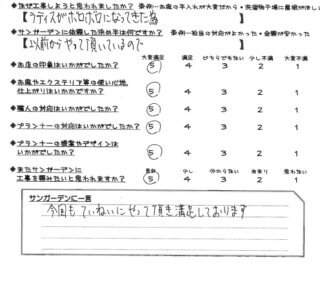 ◆なぜ工事しようと思われましたか?
【ラティスがボロボロになってきた為 】
◆サンガーデンに依頼した決め手は何ですか?
【以前からやって頂いているので 】
大変満足 満足 どちらでもない 少し不満 大変不満
◆お店の印象はいかがでしたか? 5 4 3 2 1
◆お庭やエクステリア等の使い心地
仕上がりはいかがですか? 5 4 3 2 1
◆職人の対応はいかがでしたか? 5 4 3 2 1
◆プランナーの対応はいかがでしたか? 5 4 3 2 1
◆プランナーの提案やデザインは
いかがでしたか? 5 4 3 2 1
◆またサンガーデンに
工事を頼みたいと思われますか? 5 4 3 2 1
サンガーデンに一言
今回もていねいにやって頂き満足しております